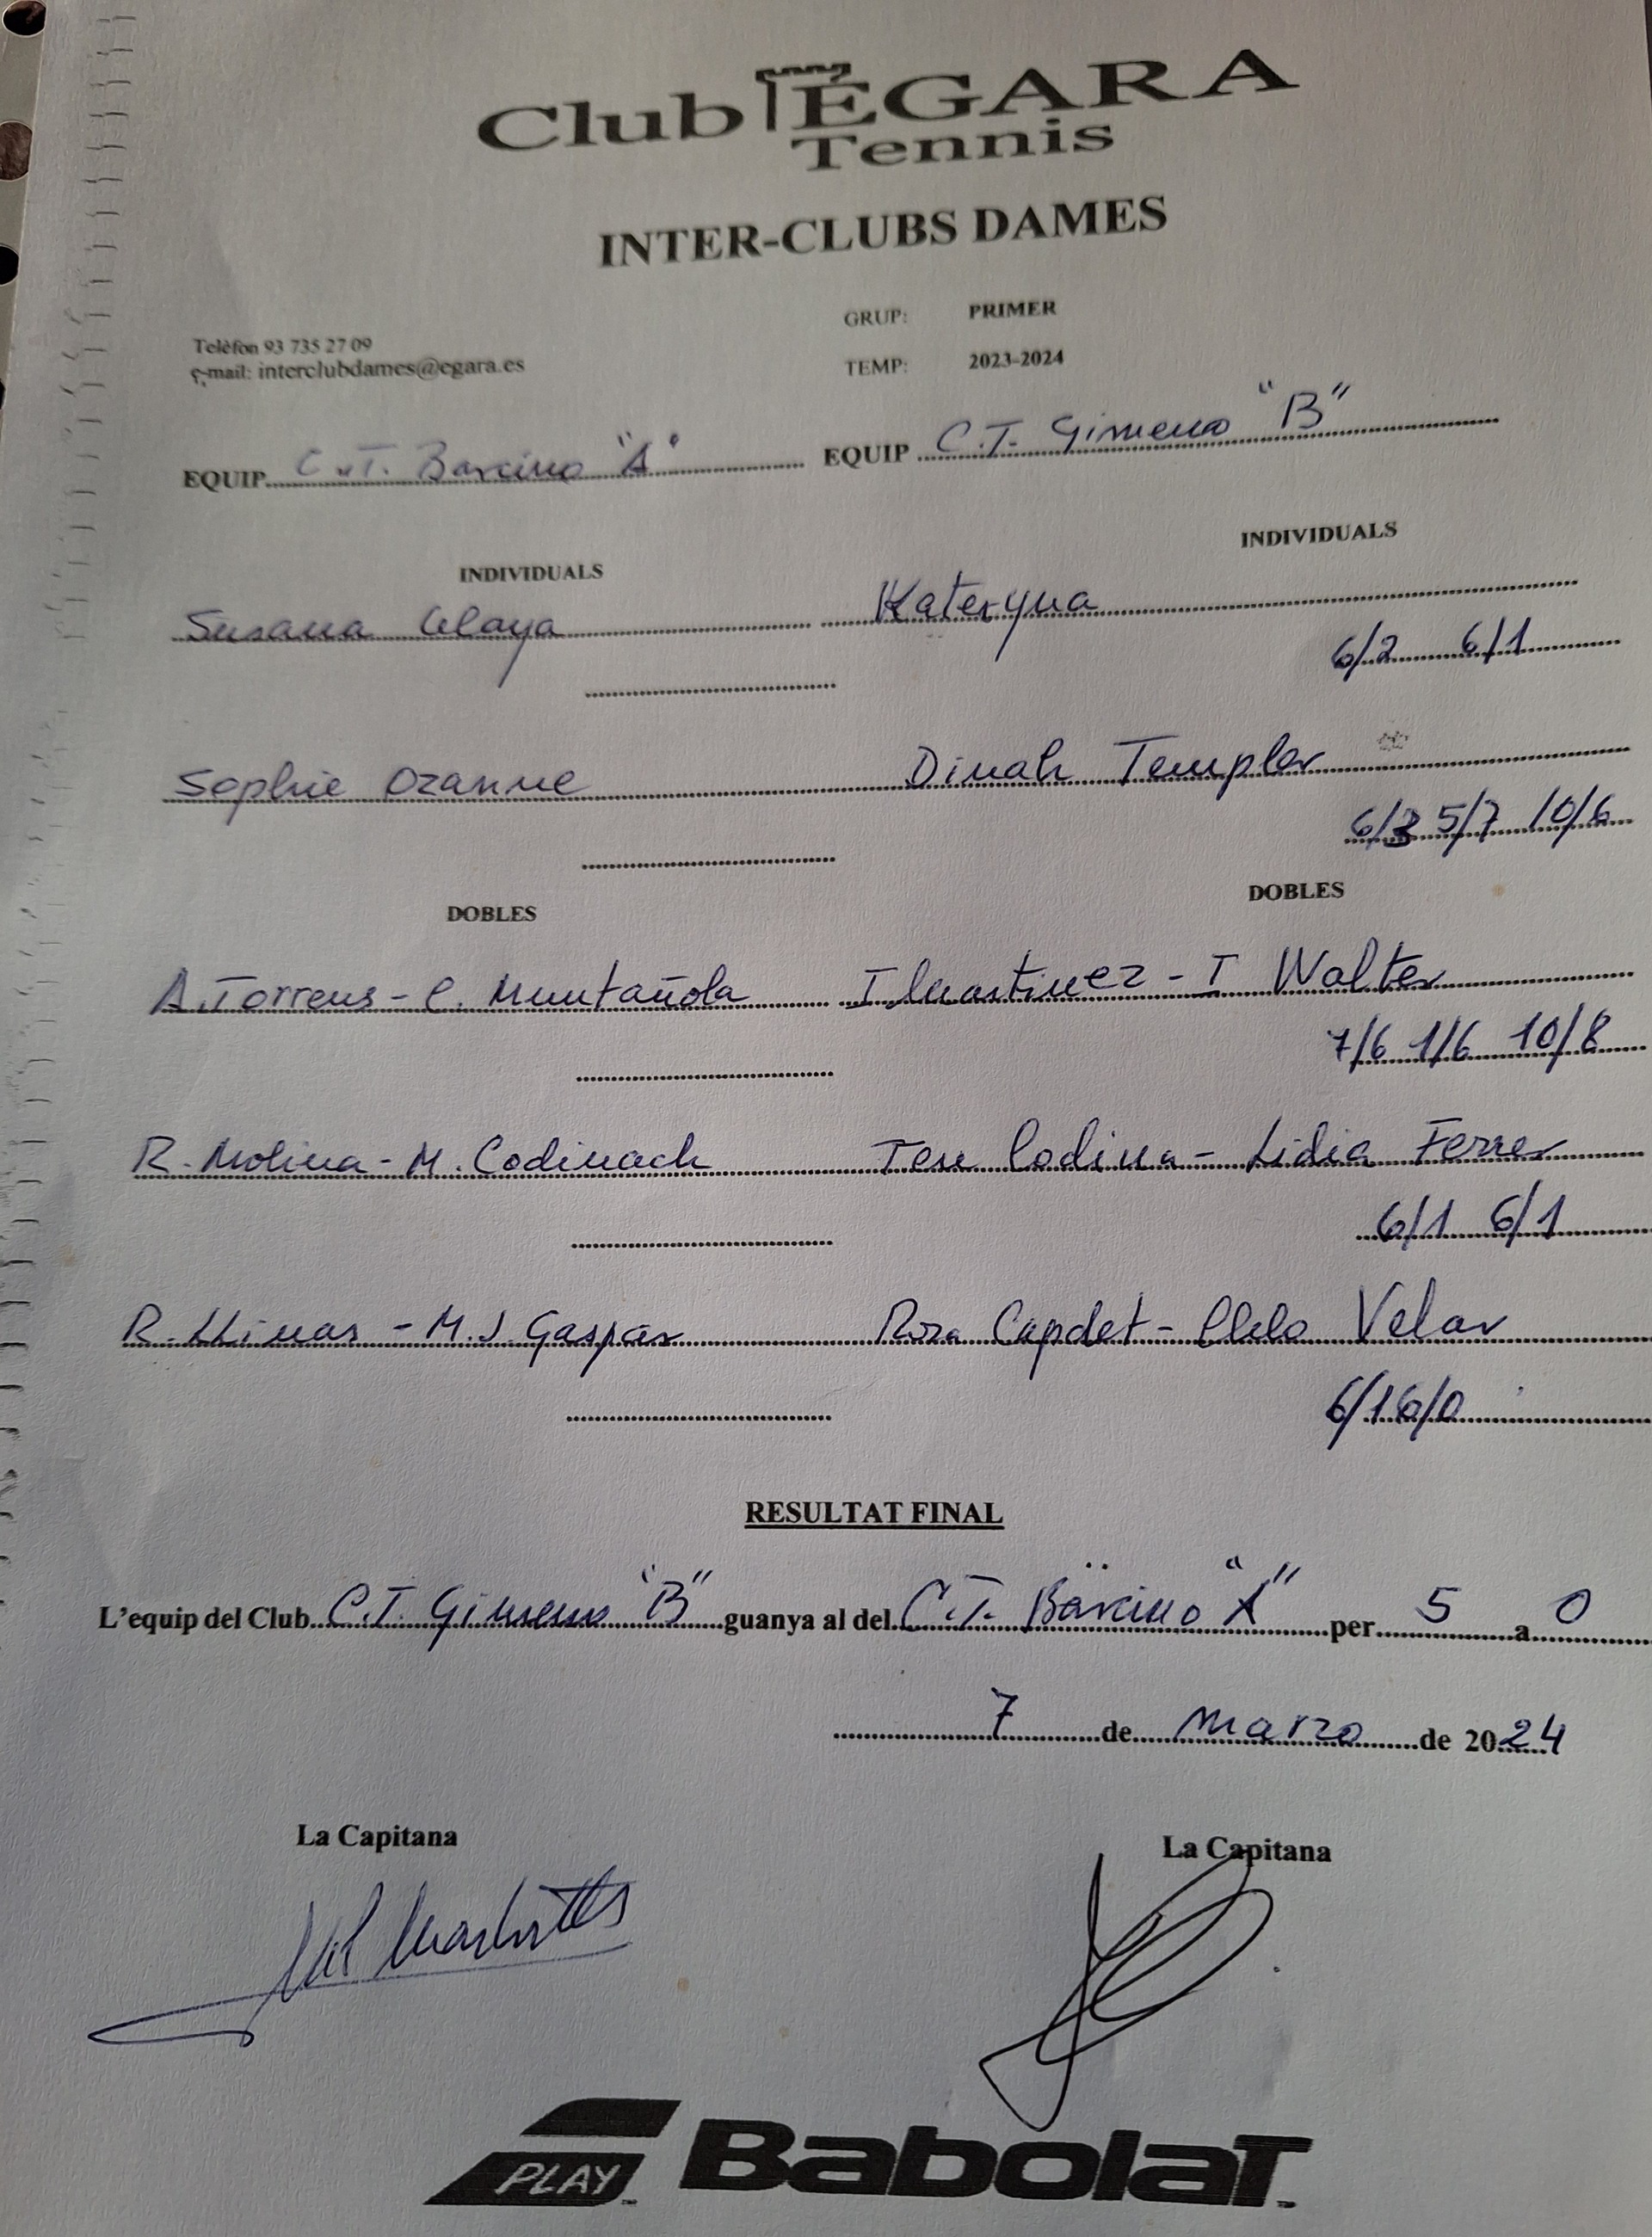 Club ÈGARA
Tennis
INTER-CLUBS DAMES
GRUP: PRIMER
Telèfon 93 735 27 09
e-mail: interclubdames@egara.es
TEMP: 2023-2024
EQUIP C.T. Barcino "A" EQUIP C.T. Gimeno "B"
INDIVIDUALS INDIVIDUALS
Susana Olaya Kateryna
6/2 6/1
Sophie Ozanne Dinah Templer
6/3 5/7 10/6
DOBLES DOBLES
A. Torrens - C. Muntañola I. Martinez - I Walter
7/6 1/6 10/8
R. Molina - M. Codinach Tere Codina - Lidia Ferrer
6/1 6/1
R. Llinas - M.J. Gaspar Rosa Capdet - Velar
6/1 6/0
RESULTAT FINAL
L'equip del Club C.T. Gimeno "B" guanya al del C.T. Barcino "A" per 5 a 0
7 de marzo de 2024
La Capitana La Capitana
PLAY Babolat